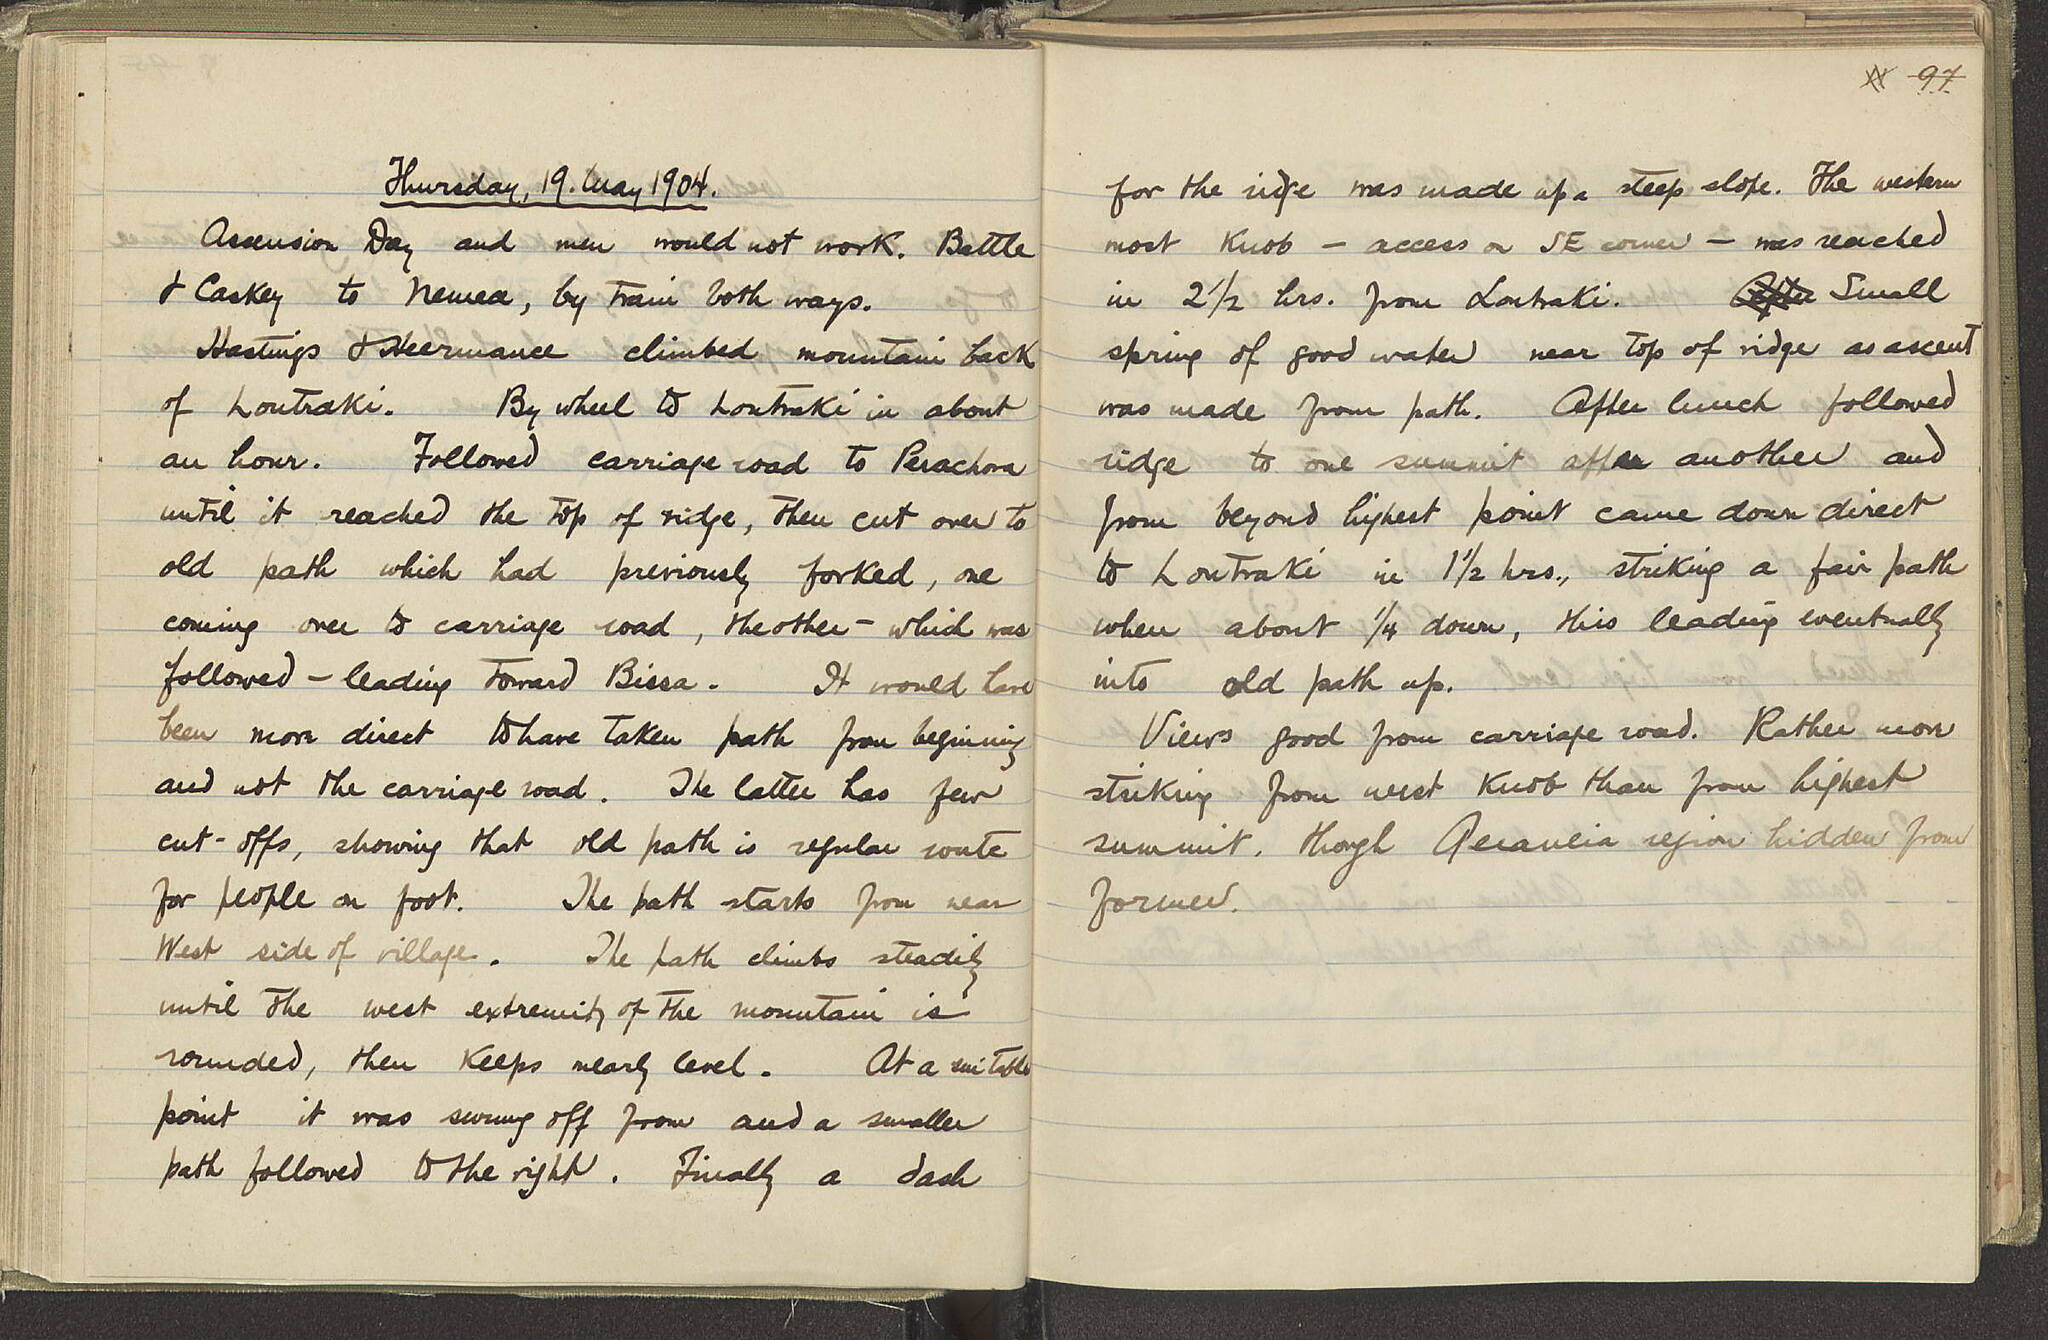 Thursday, 19. May 1904.
Ascension Day and men would not work. Battle
& Caskey to Nemea, by train both ways.
Hastings & Heermance climbed mountain back
of Loutraki. By wheel to Loutraki in about
an hour. Followed carriage road to Perachora
until it reached the top of ridge, then cut over to
old path which had previously forked, one
coming over to carriage road, the other - which was
followed - leading toward Bissa. It would have
been more direct to have taken path from beginning
and not the carriage road. The latter has few
cut-offs, showing that old path is regular route
for people on foot. The path starts from near
West side of village. The path climbs steadily
until the west extremity of the mountain is
rounded, then keeps nearly level. At a suitable
point it was swung off from and a smaller
path followed to the right. Finally a dash
97
for the ridge was made up a steep slope. The western
most knob - access on SE corner - was reached
in 2 1/2 hrs. from Loutraki. After Small
spring of good water near top of ridge as ascent
was made from path. After lunch followed
ridge to one summit after another and
from beyond highest point came down direct
to Loutraki in 1 1/2 hrs., striking a fair path
when about 1/4 down, this leading eventually
into old path up.
Views good from carriage road. Rather more
striking from west knob than from highest
summit, though Geraneia region hidden from
former.